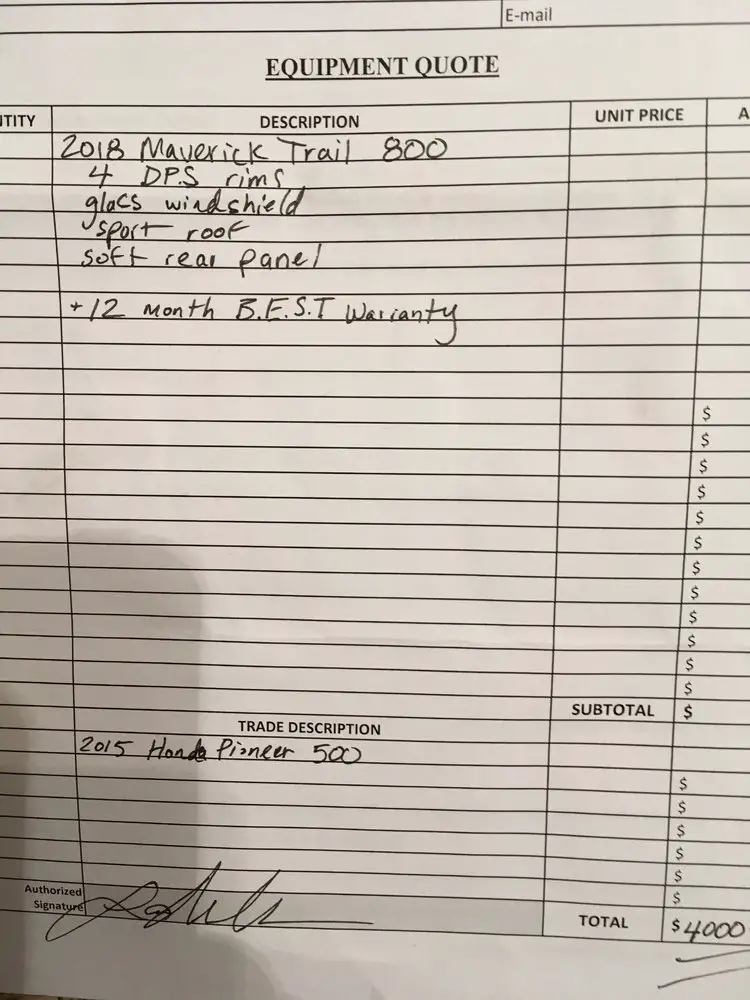 E-mail
EQUIPMENT QUOTE
NTITY DESCRIPTION UNIT PRICE A
2018 Maverick Trail 800
4 DPS rims
glass windshield
sport roof
soft rear panel
+ 12 month B.E.S.T Warranty
$
$
$
$
$
$
$
$
$
$
$
$
SUBTOTAL $
TRADE DESCRIPTION
2015 Honda Pioneer 500
$
$
$
$
$
$
Authorized
Signature
TOTAL $4000